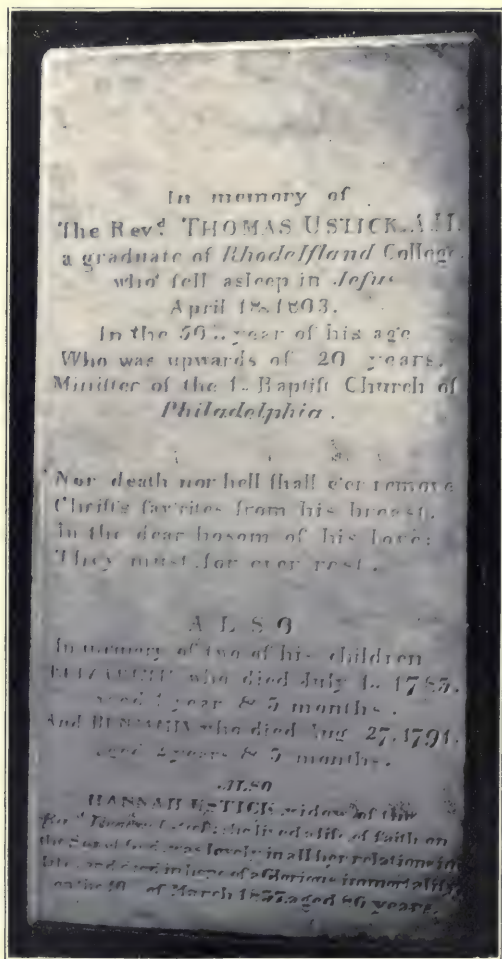 In memory of
The Revd. THOMAS USTICK. A.M.
a graduate of Rhodeiſland College.
who fell asleep in Jeſus
April 18 1803.
In the year of his age
Who was upwards of 20 years.
Miniſter of the 1 Baptiſt Church of
Philadelphia.
Nor death nor hell ſhall e'er remove
Chriſt's fav'rites from his breast.
In the dear bosom of his love:
They must for ever rest.
ALSO
In memory of two of his children
ELIZABETH who died July 1 1785.
aged 1 year & 5 months.
And BENJAMIN who died Aug 27. 1791.
aged 2 years & 5 months.
ALSO
HANNAH USTICK widow of the
Revd she lived a life of faith on
the Son of God, was lovely in all her relations in
life, and died in hope of a Glorious immortality
on the 10 of March 1837 aged 86 years.